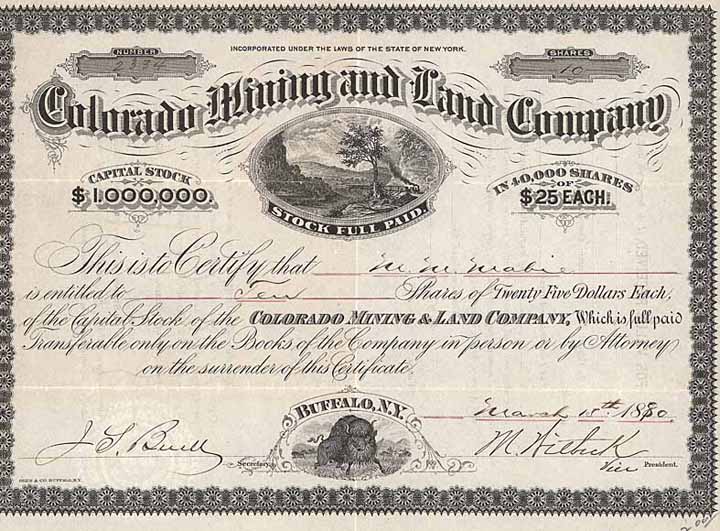 INCORPORATED UNDER THE LAWS OF THE STATE OF NEW YORK.
NUMBER
2334
SHARES
10
Colorado Mining and Land Company
CAPITAL STOCK
$1,000,000.
IN 40,000 SHARES
OF
$25 EACH.
STOCK FULL PAID.
This is to Certify that M. M. Mabie
is entitled to Ten Shares of Twenty Five Dollars Each,
of the Capital Stock of the COLORADO MINING & LAND COMPANY, Which is full paid
Transferable only on the Books of the Company in person or by Attorney
on the surrender of this Certificate.
BUFFALO, N.Y. March 15th 1880.
Secretary.
Vice President.